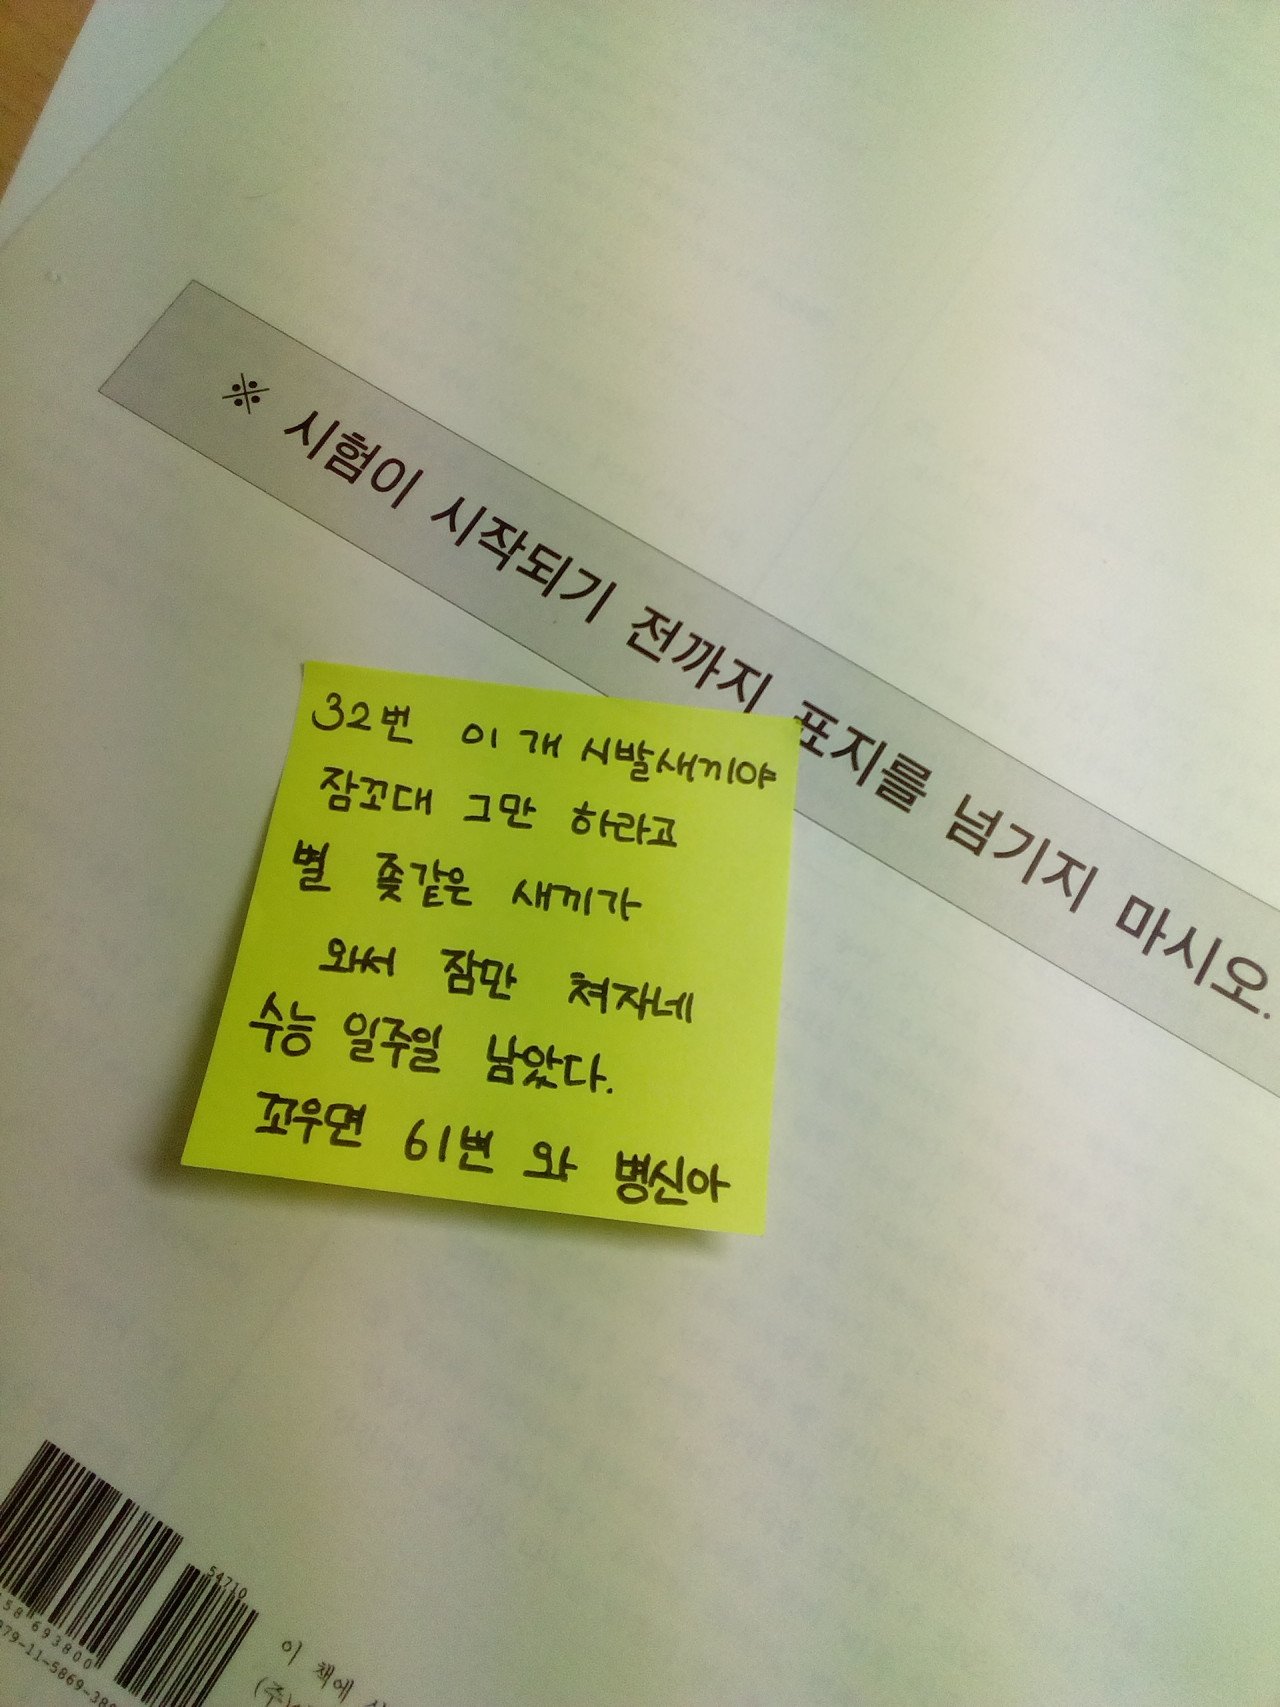 ※ 시험이 시작되기 전까지 표지를 넘기지 마시오.
32번 이 개 시발새끼야
잠꼬대 그만 하라고
별 좆같은 새끼가
와서 잠만 쳐자네
수능 일주일 남았다.
꼬우면 61번 와 병신아
54710
58 693800
979-11-5869-38
이 책에
(주)